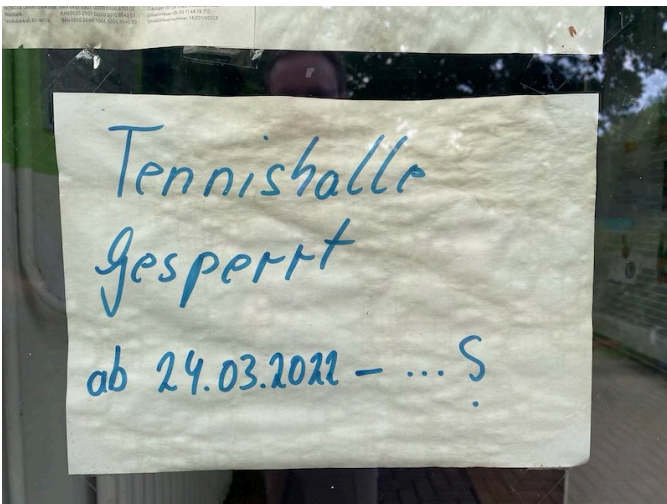 Tennishalle
gesperrt
ab 24.03.2022 - ... ?